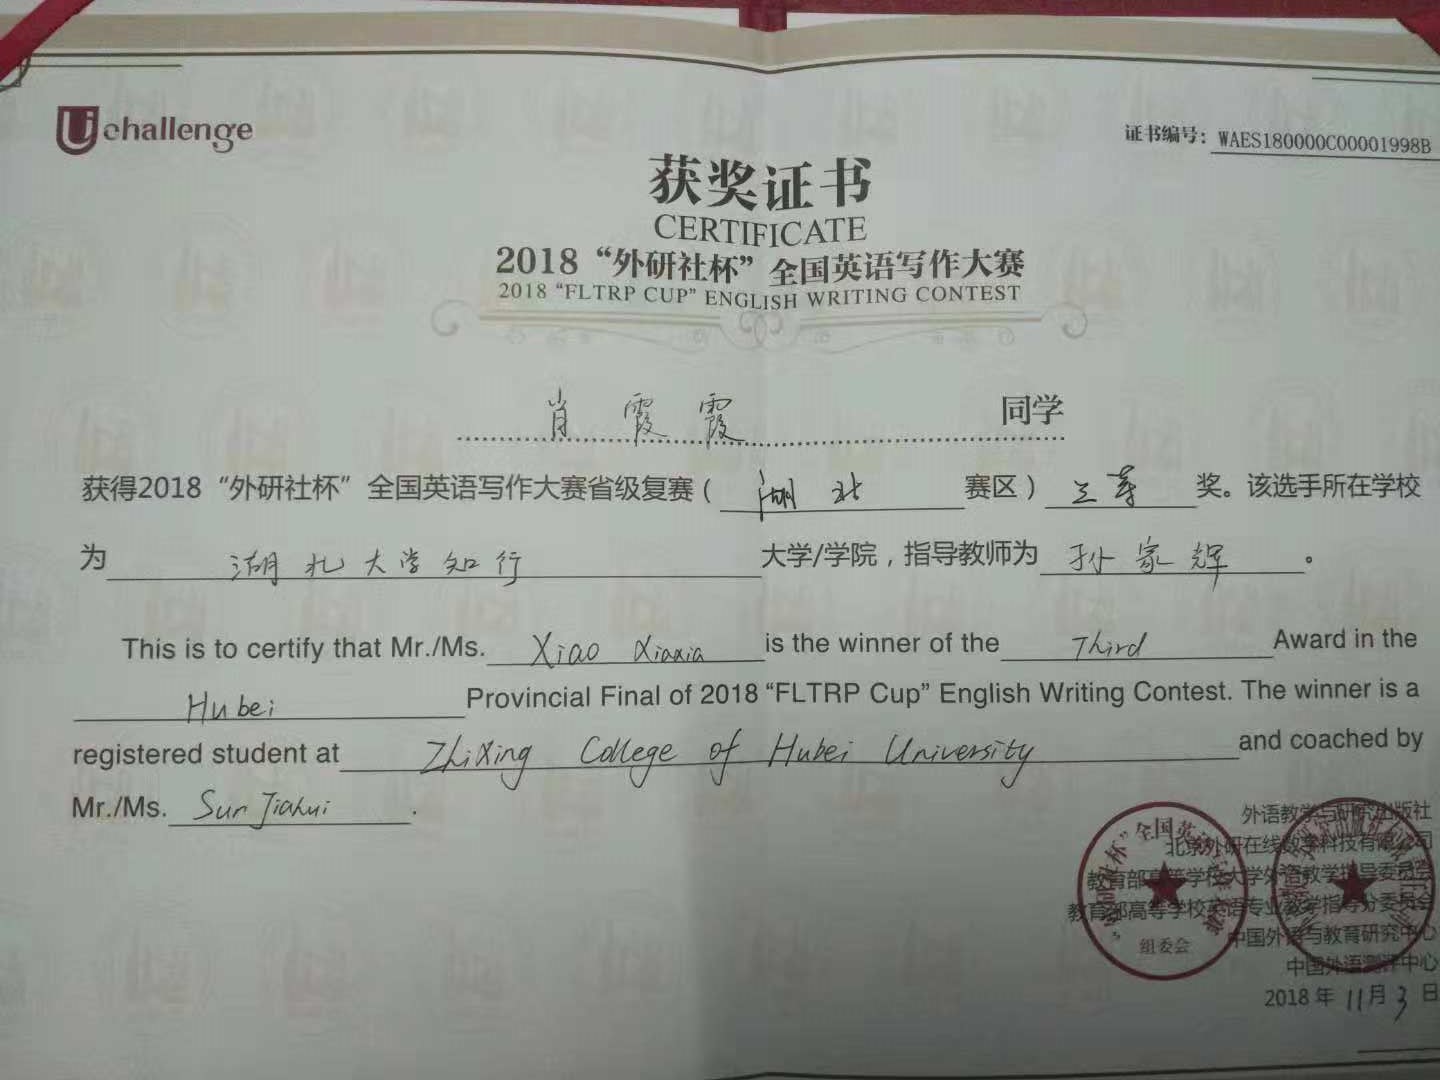 Uchallenge
证书编号：WAES180000C00001998B
获奖证书
CERTIFICATE
2018“外研社杯”全国英语写作大赛
2018 “FLTRP CUP” ENGLISH WRITING CONTEST
肖霞霞 同学
获得2018“外研社杯”全国英语写作大赛省级复赛（湖北赛区）三等奖。该选手所在学校
为湖北大学知行大学/学院，指导教师为孙家辉。
This is to certify that Mr./Ms. Xiao Xiaxia is the winner of the Third Award in the
Hubei Provincial Final of 2018 “FLTRP Cup” English Writing Contest. The winner is a
registered student at ZhiXing College of Hubei University and coached by
Mr./Ms. Sun Jiahui.
外语教学与研究出版社
北京外研在线数字科技有限公司
教育部高等学校大学外语教学指导委员会
教育部高等学校英语专业教学指导分委员会
中国外语与教育研究中心
中国外语测评中心
2018年11月3日
组委会